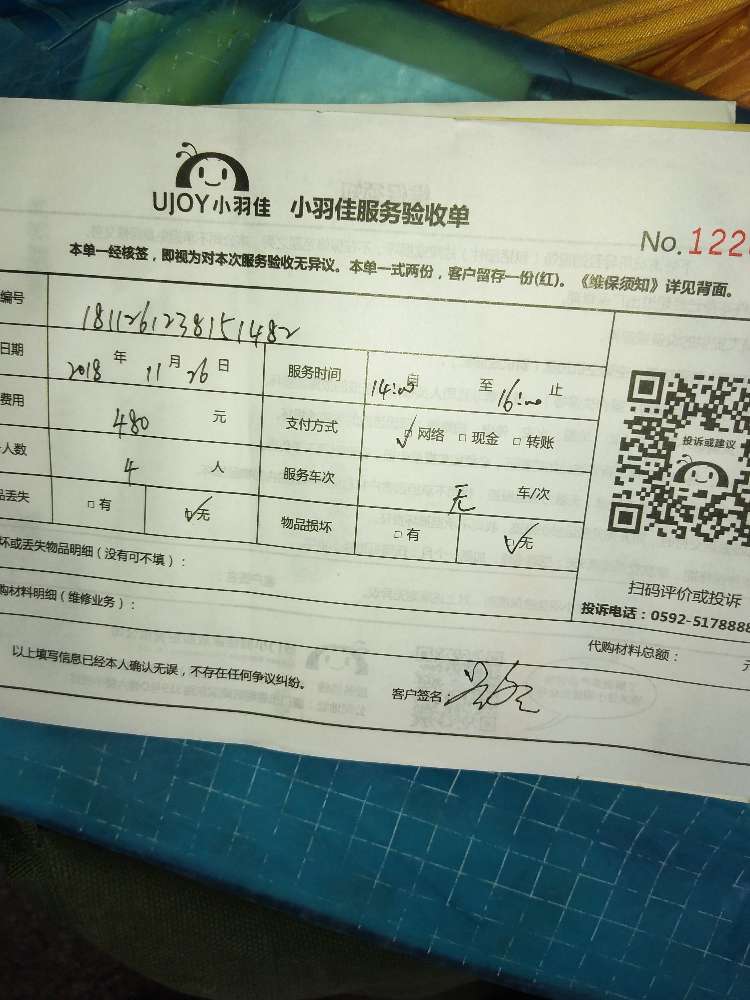 UJOY小羽佳 小羽佳服务验收单
No. 122
本单一经核签，即视为对本次服务验收无异议。本单一式两份，客户留存一份(红)。《维保须知》详见背面。
编号 1811261238151482
日期 2018 年 11 月 26 日 服务时间 14:00 自 至 16:00 止
费用 480 元 支付方式 网络 现金 转账
人数 4 人 服务车次 无 车/次
丢失 有 无 物品损坏 有 无
投诉或建议
坏或丢失物品明细（没有可不填）：
扫码评价或投诉
购材料明细（维修业务）：
投诉电话：0592-5178888
代购材料总额：
以上填写信息已经本人确认无误，不存在任何争议纠纷。
客户签名：